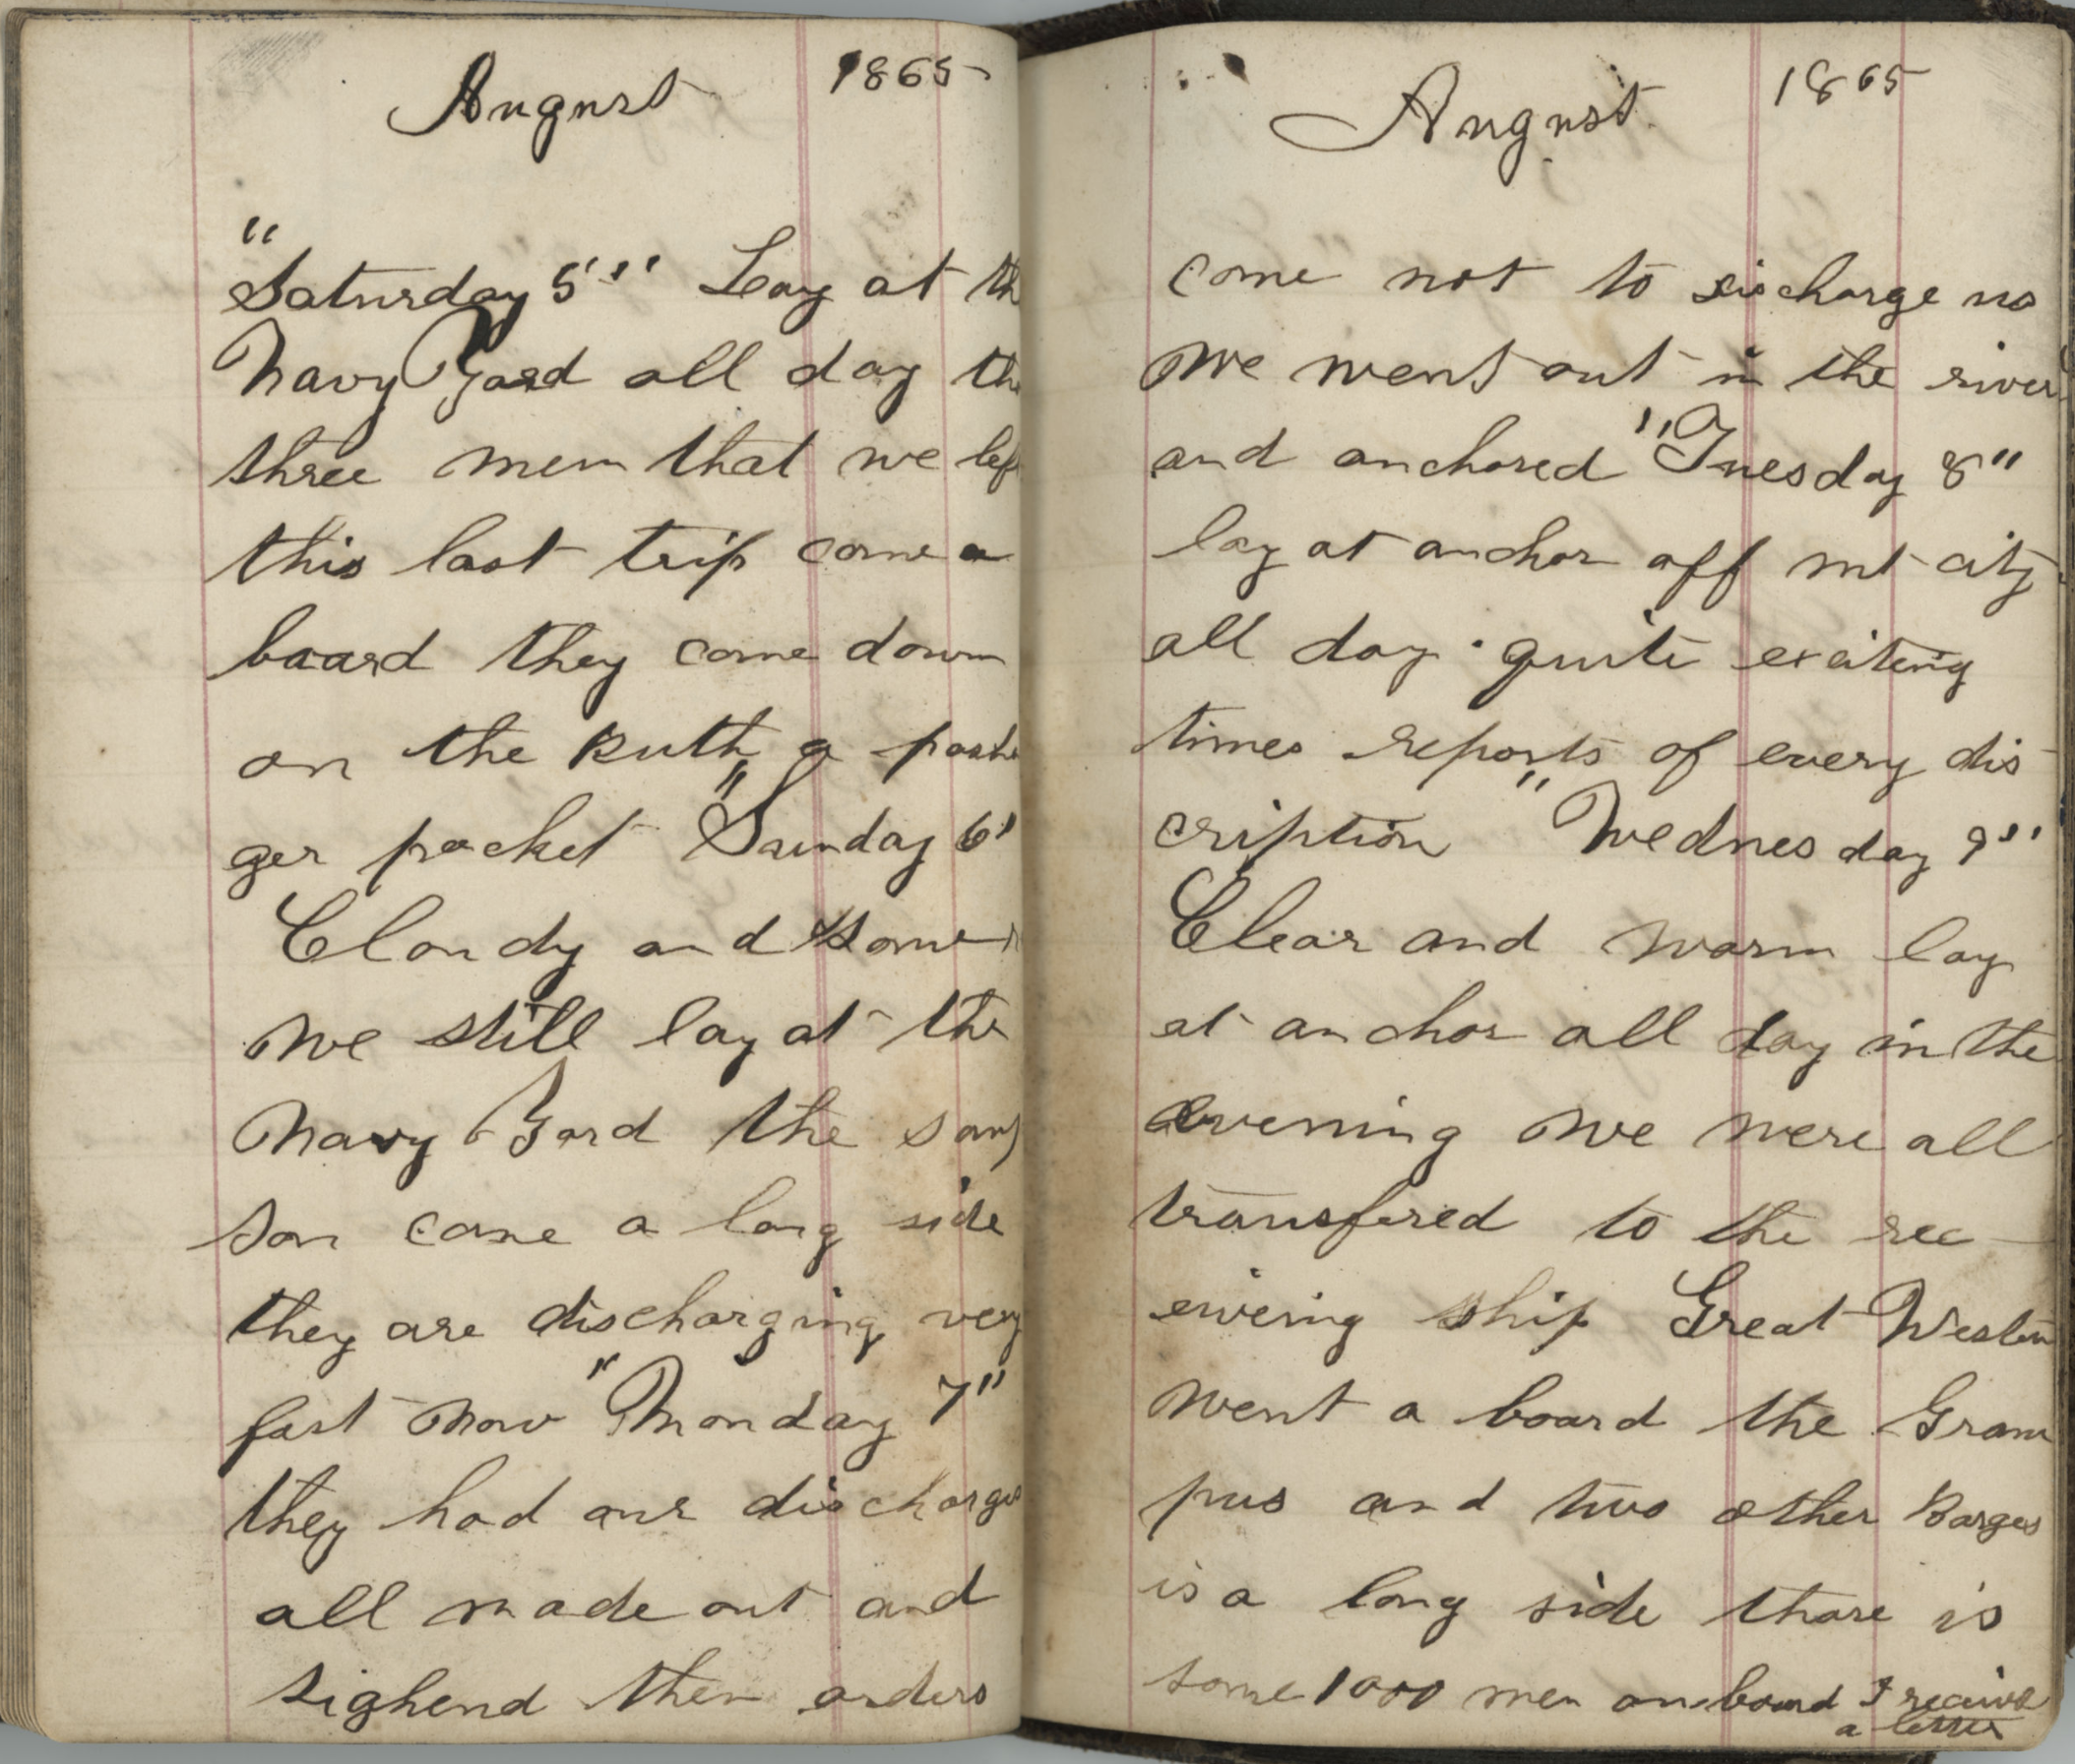 August 1865
"Saturday 5"" Lay at th
Navy Yard all day the
three men that we lef
this last trip come a
board they come down
on the Ruth a
ger packet "Sunday 6"
Cloudy and some
we still lay at the
Navy Yard the
son come a long side
they are discharging very
fast now "Monday 7"
they had our discharges
all made out and
sighend then orders
August 1865
come not to discharge us
we went out in the river
and anchored "Tuesday 8"
lay at anchor off mt city
all day quite exciting
times reports of every dis
cription "Wednesday 9"
Clear and warm lay
at anchor all day in the
evening we were all
transfered to the rec
eivering ship Great Western
went a board the Gram
pus and two other Barges
is a long side thare is
some 1000 men on board I receive
a letter